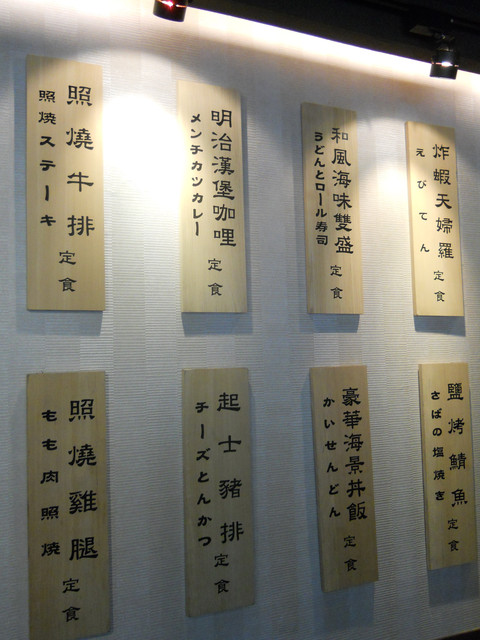 照燒牛排定食
照焼ステーキ
明治漢堡咖哩定食
メンチカツカレー
和風海味雙盛定食
うどんとロール寿司
炸蝦天婦羅定食
えびてん
照燒雞腿定食
もも肉照焼
起士豬排定食
チーズとんかつ
豪華海景丼飯定食
かいせんどん
鹽烤鯖魚定食
さばの塩焼き